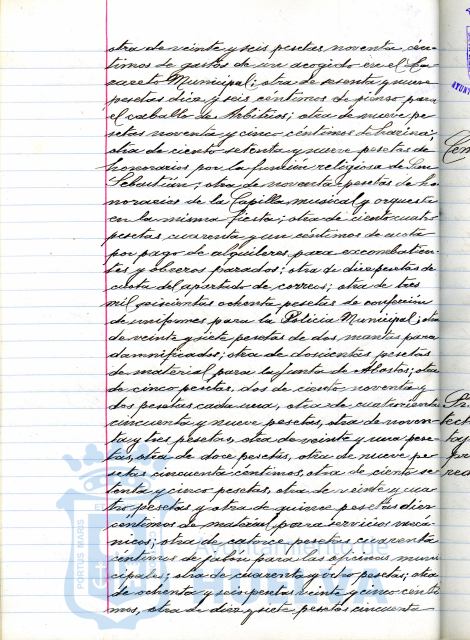 otra de veinte y seis pesetas noventa cén-
timos de gastos de un acogido en el La-
zareto Municipal; otra de sesenta y nueve
pesetas diez y seis céntimos de pienso para
el caballo de Arbitrios; otra de nueve pe-
setas noventa y cinco céntimos de harina;
otra de ciento setenta y nueve pesetas de
honorarios por la función religiosa de San
Sebastian; otra de noventa pesetas de ho
norarios de la Capilla musical y orquesta
en la misma fiesta; otra de cientocuatro
pesetas cuarenta y un céntimos de cuota
por pago de alquileres para excombatien-
tes y obreros parados; otra de diez pesetas de
cuota del apartado de correos; otra de tres
mil seiscientas ochenta pesetas de confección
de uniformes para la Policia Municipal; otra
de veinte y siete pesetas de dos mantas para
damnificados; otra de doscientas pesetas
de material para la Junta de Abastos; otra
de cinco pesetas, dos de ciento noventa y
dos pesetas cada una, otra de cuatrocientas
cincuenta y nueve pesetas, otra de noven-
ta y tres pesetas, otra de veinte y una pese-
tas, otra de doce pesetas, otra de nueve pe-
setas cincuenta céntimos, otra de ciento se-
tenta y cinco pesetas, otra de veinte y cua-
tro pesetas y otra de quince pesetas diez
céntimos de material para servicios mecá-
nicos; otra de catorce pesetas cuarenta
céntimos de jabón para las oficinas muni
cipales; otra de cuarenta y ocho pesetas, otra
de ochenta y seis pesetas veinte y cinco cénti
mos, otra de diez y siete pesetas cincuenta
PORTUS MARIS
Ayuntamiento de
HUELVA